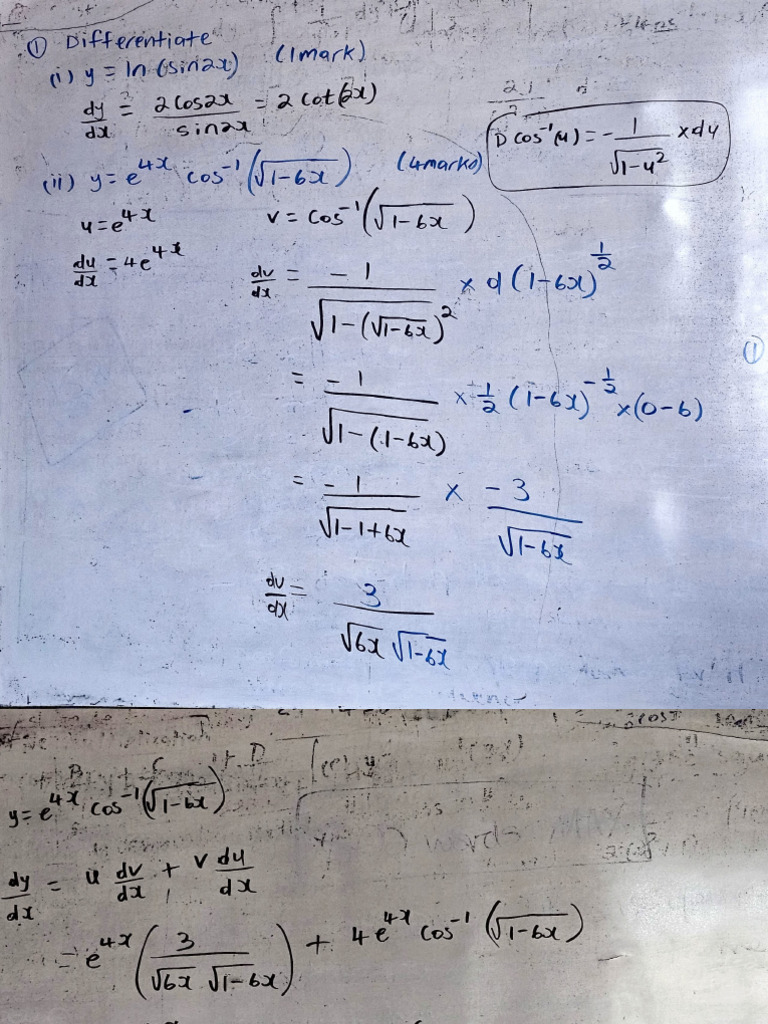 ① Differentiate
(i) y = ln(sin2x) (1mark)
dy/dx = 2cos2x/sin2x = 2cot(2x)
D cos⁻¹(u) = -1/√(1-u²) × du
(ii) y = e^4x cos⁻¹(√(1-6x)) (4marks)
u = e^4x v = cos⁻¹(√(1-6x))
du/dx = 4e^4x dv/dx = -1/√(1-(√(1-6x))²) × d(1-6x)^½
= -1/√(1-(1-6x)) × ½(1-6x)^-½ × (0-6)
= -1/√(1-1+6x) × -3/√(1-6x)
dv/dx = 3/(√6x √(1-6x))
y = e^4x cos⁻¹(√(1-6x))
dy/dx = u dv/dx + v du/dx
= e^4x (3/(√6x √(1-6x))) + 4e^4x cos⁻¹(√(1-6x))